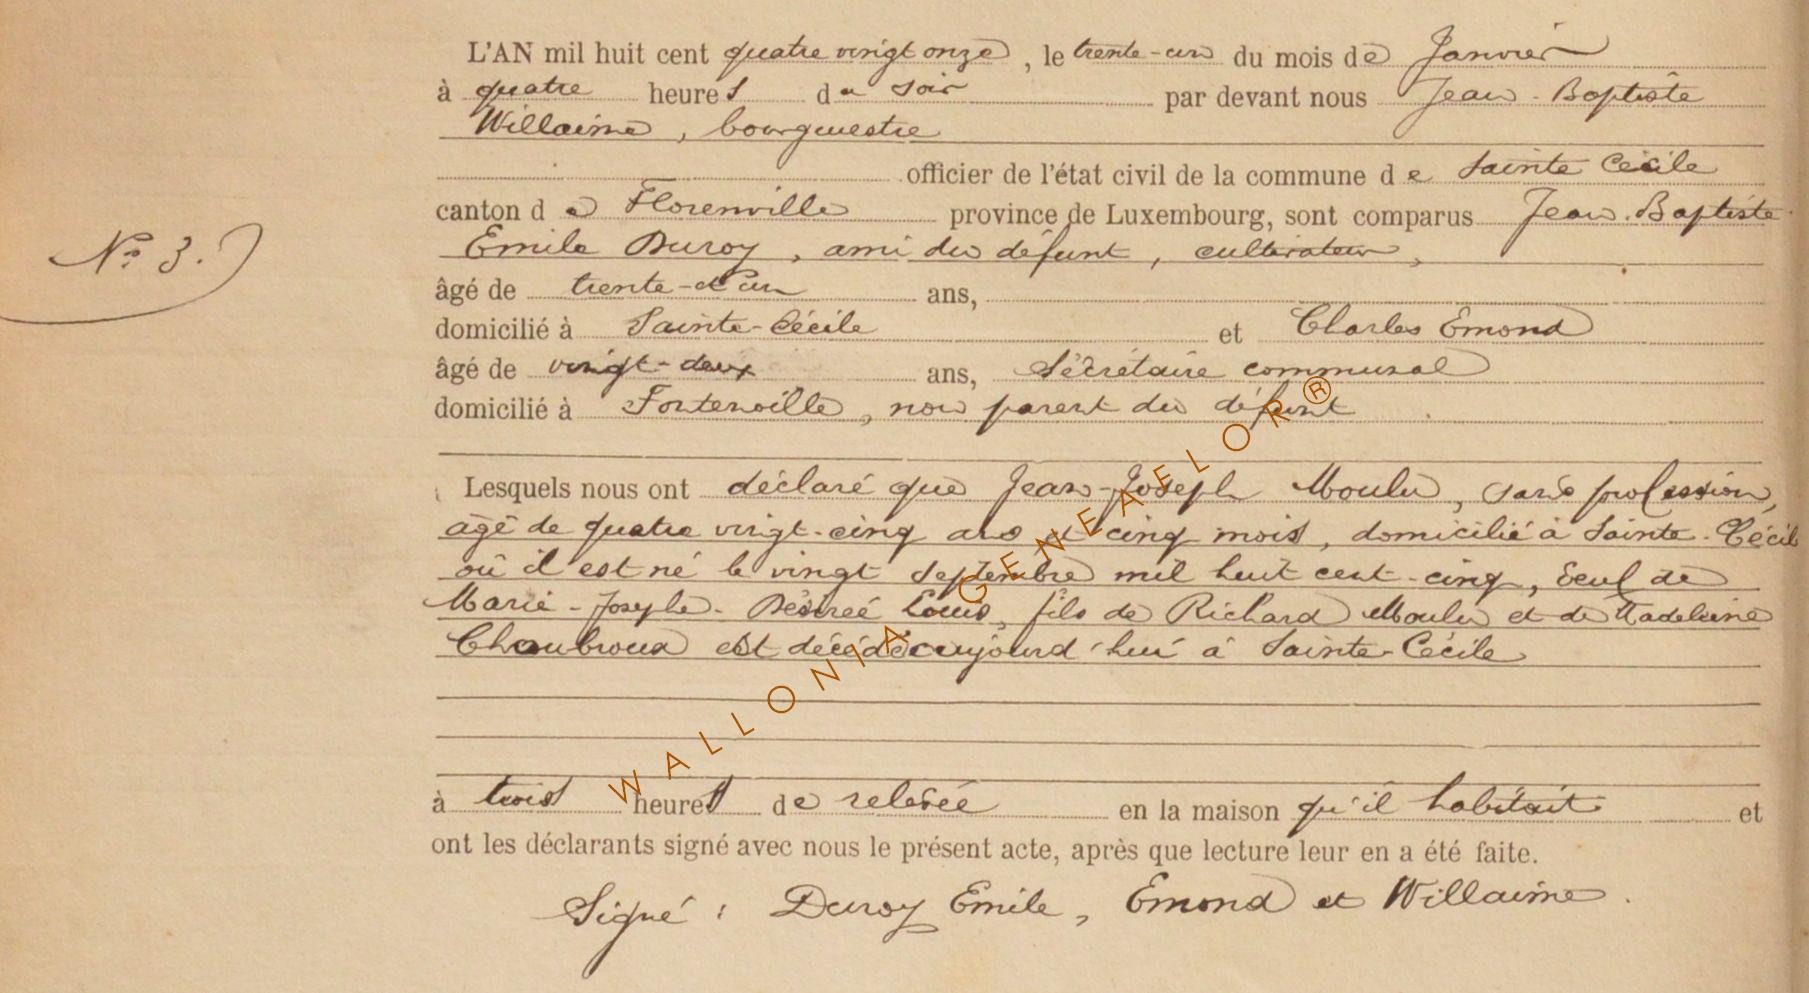 L'AN mil huit cent quatre vingt onze, le trente-un du mois de Janvier
à quatre heures du soir par devant nous Jean-Baptiste
Willaime, bourgmestre
officier de l'état civil de la commune de Sainte Cécile
canton de Florenville province de Luxembourg, sont comparus Jean-Baptiste
N° 3.
Emile Duroy, ami du défunt, cultivateur,
âgé de trente-et un ans,
domicilié à Sainte-Cécile et Charles Emond
âgé de vingt-deux ans, Sécrétaire communal
domicilié à Fontenoille, non parent du défunt
Lesquels nous ont déclaré que Jean-Joseph Moulu, sans profession,
âgé de quatre vingt-cinq ans et cinq mois, domicilié à Sainte-Cécile
où il est né le vingt septembre mil huit cent-cinq, veuf de
Marie-Josephe-Désireé Louis, fils de Richard Moulu et de Madeleine
Choubroux est décédé aujourd'hui à Sainte-Cécile
à trois heures de relevée en la maison qu'il habitait et
ont les déclarants signé avec nous le présent acte, après que lecture leur en a été faite.
Signé : Duroy Emile, Emond et Willaime.
WALLONIA GENEAFLOR®